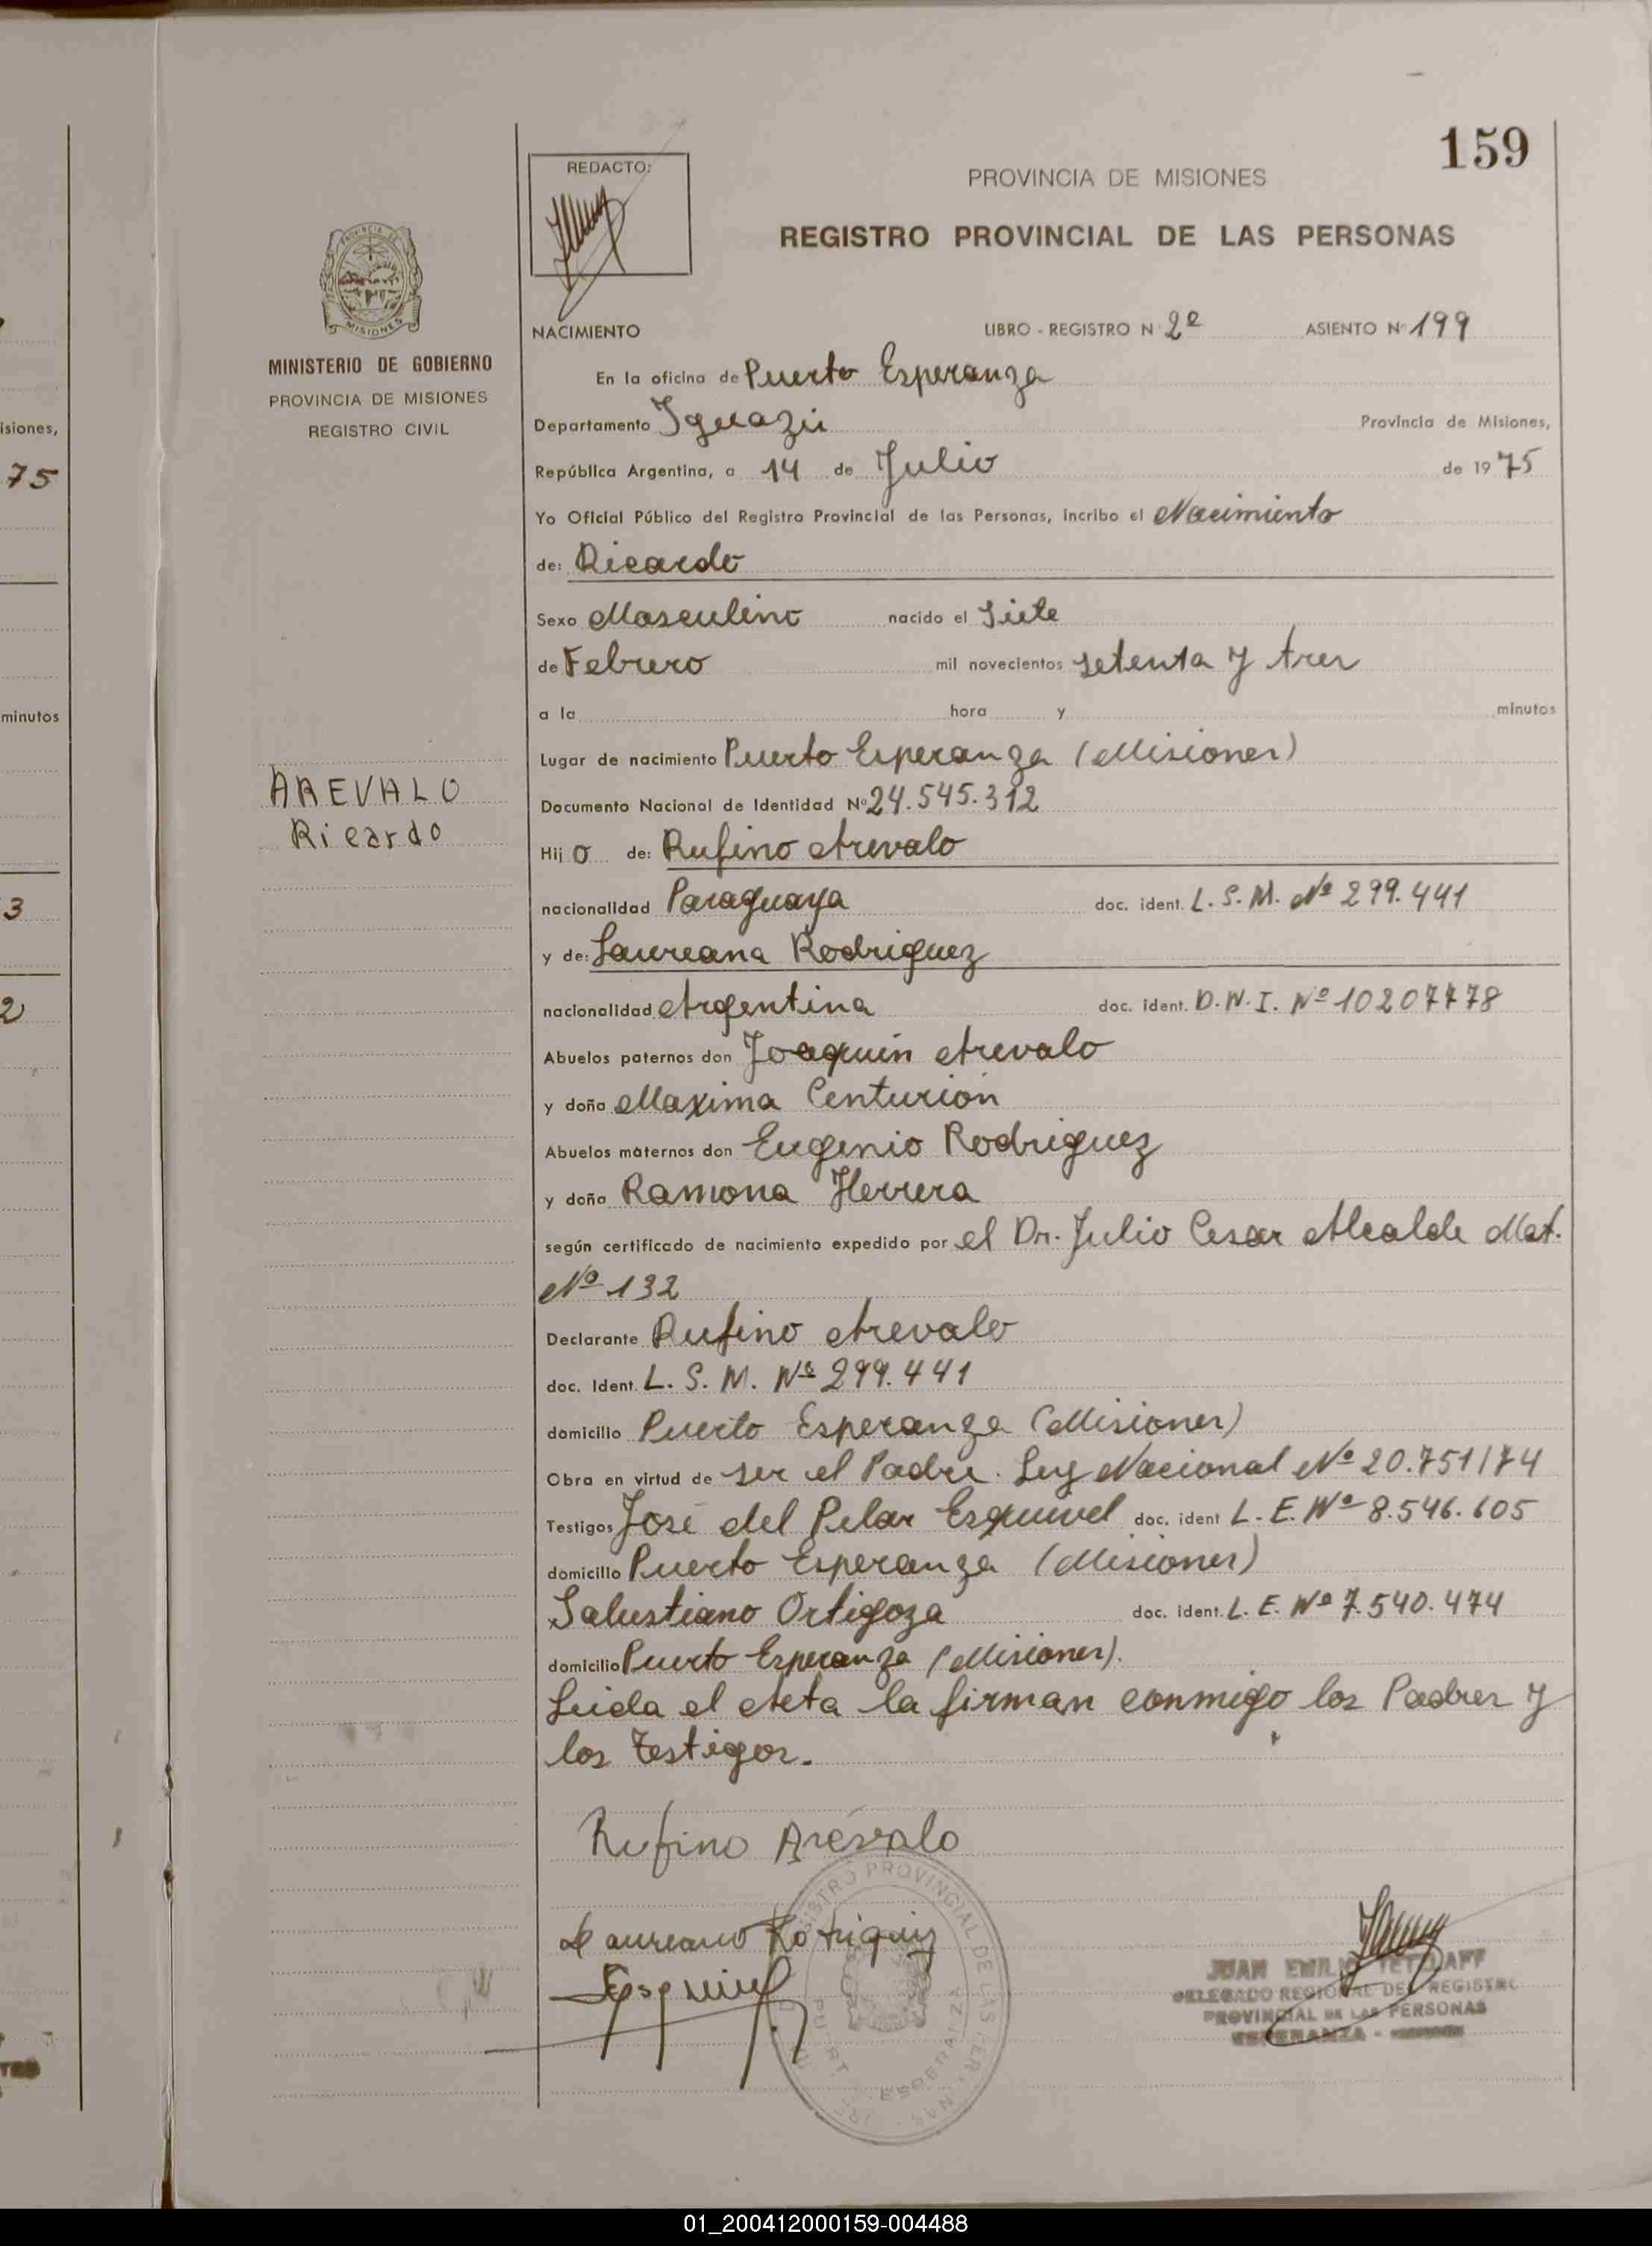 159
REDACTO:
PROVINCIA DE MISIONES
REGISTRO PROVINCIAL DE LAS PERSONAS
PROVINCIA DE
MISIONES
MINISTERIO DE GOBIERNO
PROVINCIA DE MISIONES
REGISTRO CIVIL
NACIMIENTO LIBRO - REGISTRO N 2º ASIENTO Nº 199
En la oficina de Puerto Esperanza
Departamento Iguazú Provincia de Misiones,
República Argentina, a 14 de Julio de 1975
Yo Oficial Público del Registro Provincial de las Personas, incribo el Nacimiento
de: Ricardo
Sexo Masculino nacido el Siete
de Febrero mil novecientos setenta y tres
a la hora y minutos
Lugar de nacimiento Puerto Esperanza (Misiones)
AREVALO
Ricardo
Documento Nacional de Identidad Nº 24.545.312
Hijo de: Rufino Arevalo
nacionalidad Paraguaya doc. ident. L. S. M. Nº 299.441
y de: Laureana Rodriguez
nacionalidad Argentina doc. ident. D.N.I. Nº 10207778
Abuelos paternos don Joaquin Arevalo
y doña Maxima Centurión
Abuelos maternos don Eugenio Rodriguez
y doña Ramona Herrera
según certificado de nacimiento expedido por el Dr. Julio Cesar Alcalde Mat.
Nº 132
Declarante Rufino Arevalo
doc. Ident. L. S. M. Nº 299.441
domicilio Puerto Esperanza (Misiones)
Obra en virtud de ser el Padre. Ley Nacional Nº 20.751/74
Testigos José del Pilar Esquivel doc. ident L. E. Nº 8.546.605
domicilio Puerto Esperanza (Misiones)
Salustiano Ortigoza doc. ident. L. E. Nº 7.540.474
domicilio Puerto Esperanza (Misiones).
Leida el Acta la firman conmigo los Padres y
los Testigos.
Rufino Arévalo
Laureano Rotriguiz
Esquivel
JUAN EMILIO
DELEGADO REGIONAL DEL REGISTRO
PROVINCIAL DE LAS PERSONAS
ESPERANZA -
isiones,
75
minutos
3
2
01_200412000159-004488